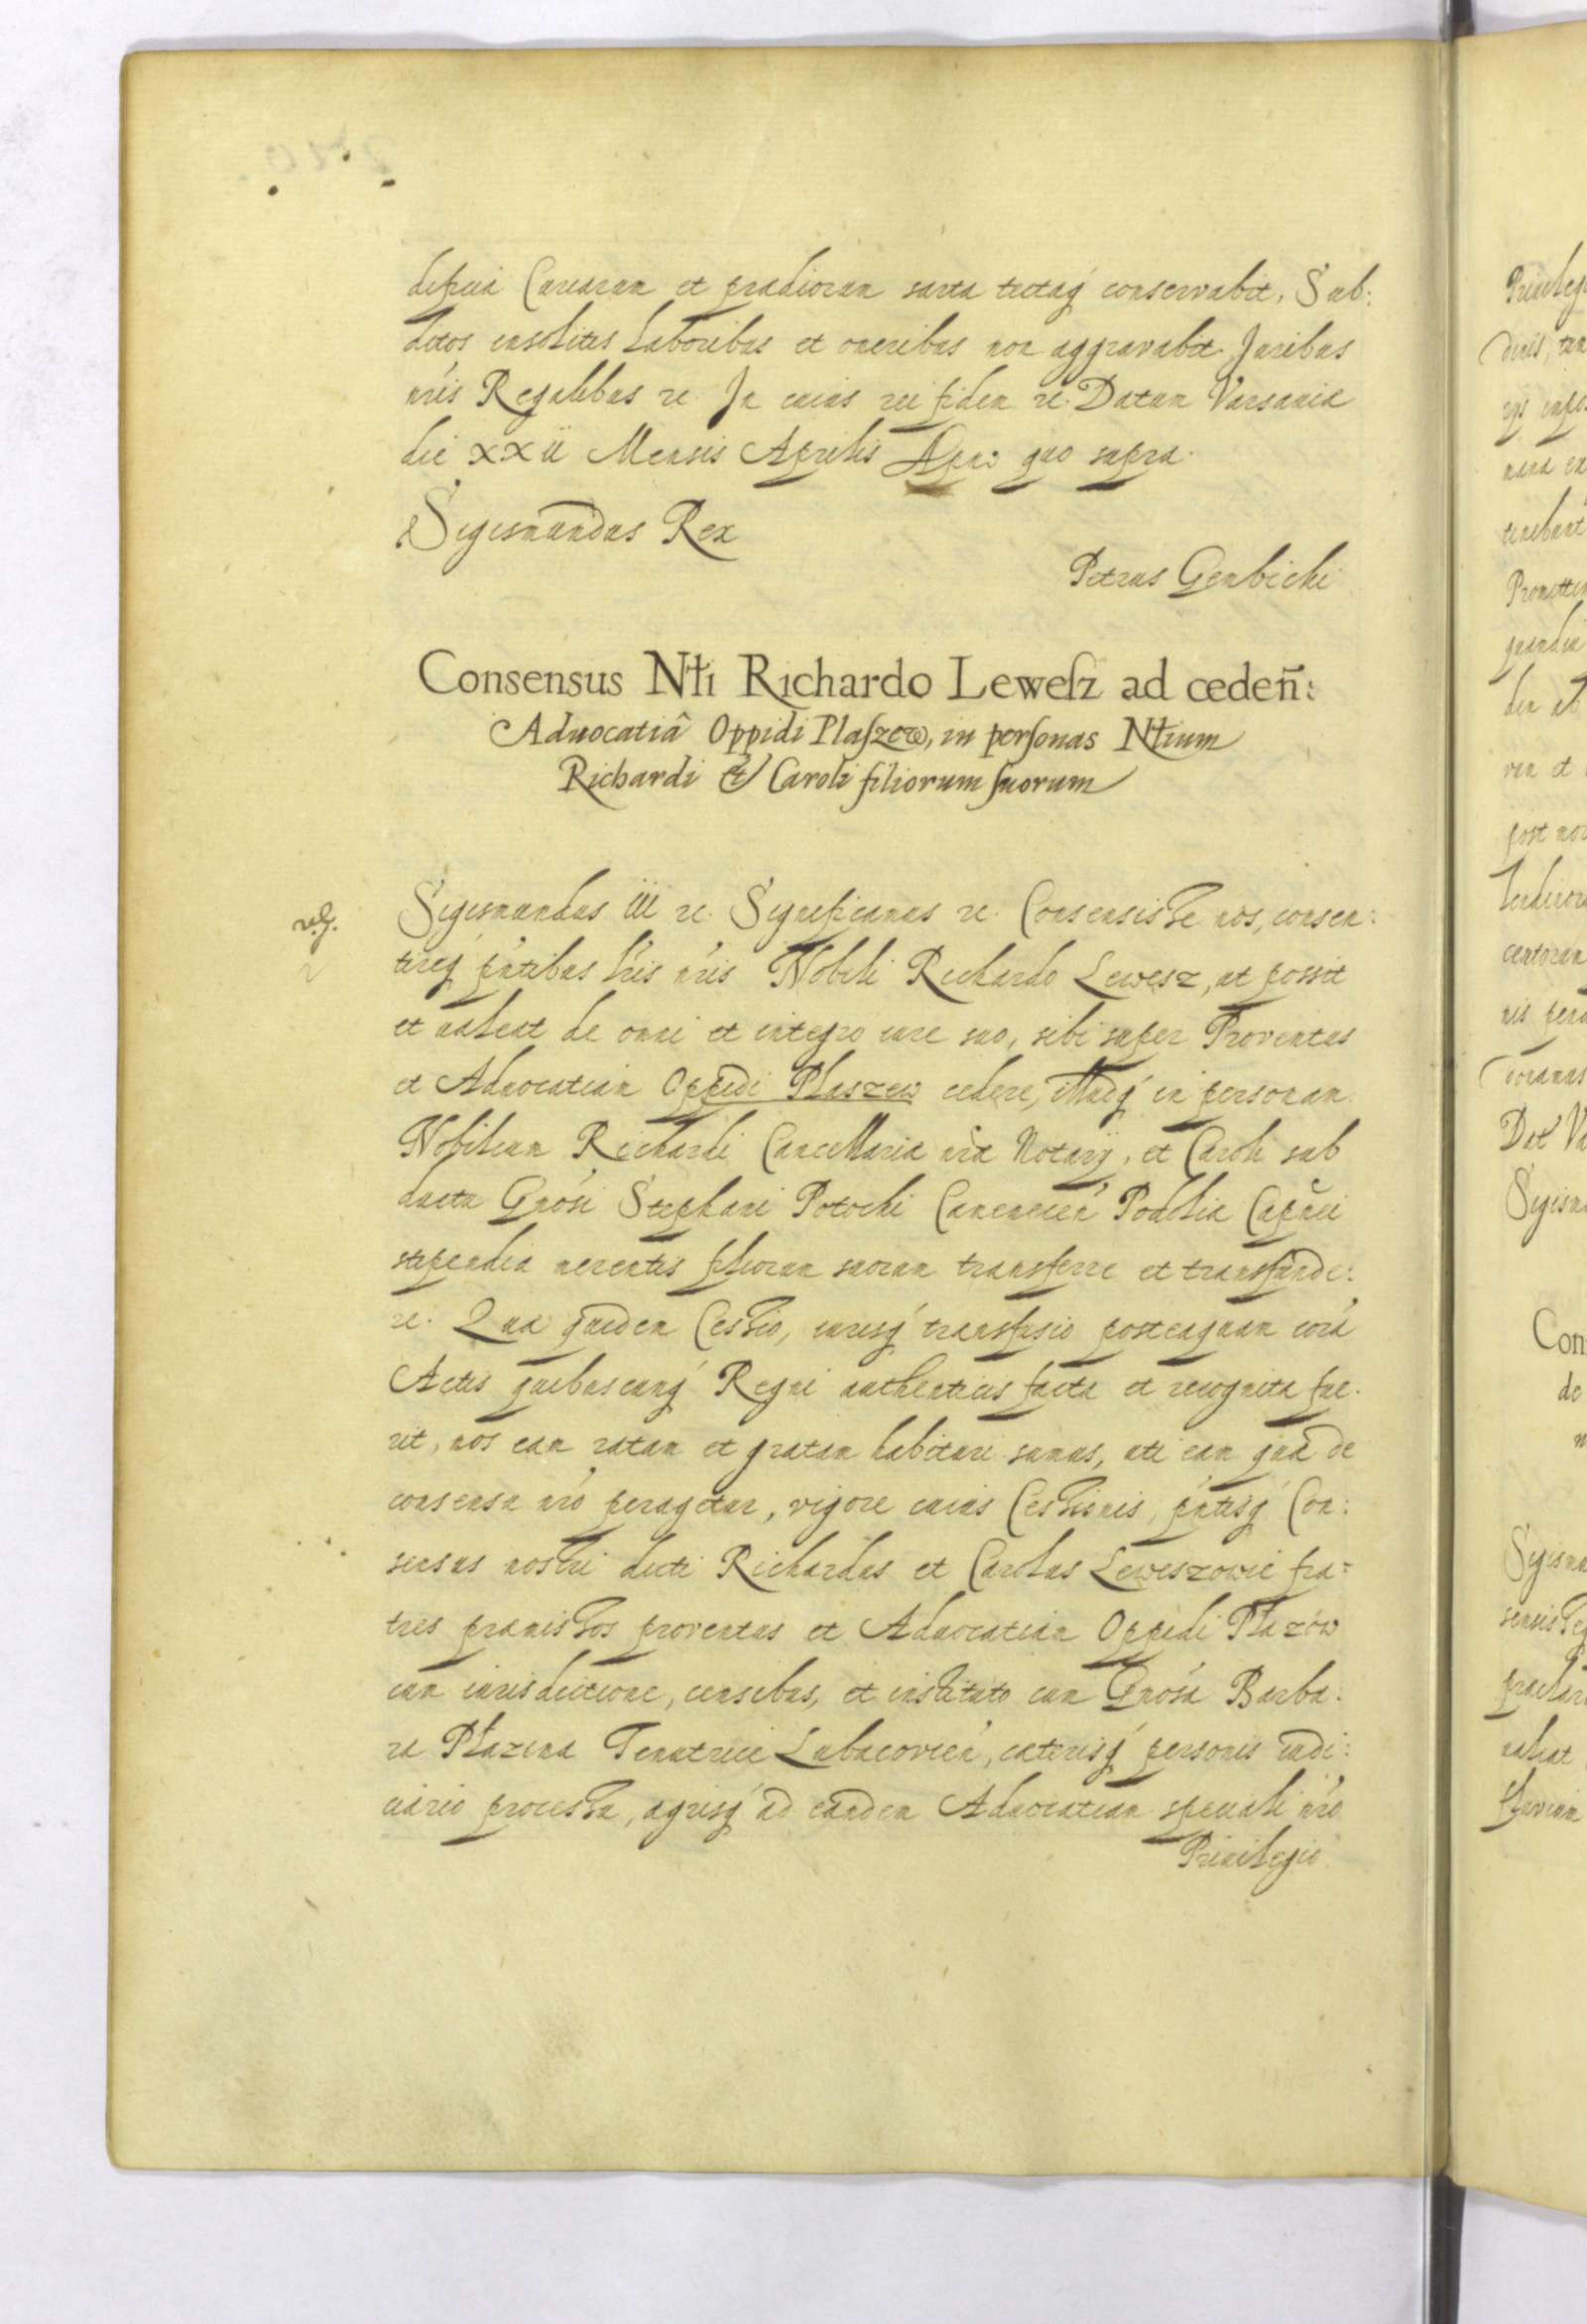 Curiarum et prædiorum sarta tectaq́ conservabit, Sub:
ditos insolitis laboribus et oneribus non aggravabit. Juribus
nr̃is Regalibus rc. In cuius rei fidem rc. Datum Varsaviæ
die xxii Mensis Aprilis Anno quo supra.
Sigismundus Rex
Petrus Gembicki
Consensus Nłi Richardo Leweſz ad cedeñ:
Aduocatiâ Oppidi Plaſzew, in perſonas Nłium
Richardi & Caroli filiorum ſuorum
Sigismundus iii rc. Significamus rc. Consensisse nos, consen:
tireq́ pñtibus lr̃is nr̃is Nobili Richardo Lewesz, ut possit
et ualeat de omni et integro iure suo, sibi super Proventus
et Aduocatiam Oppidi Plaszew cedere, illudq́ in personam
Nobilium Richardi Cancellariæ nr̃æ Notarij, et Caroli sub
ductu Gnosi Stephani Potocki Camenecen̄ Podoliæ Capnei
stipendia merentis filiorum suorum transferre et transfunde:
re. Quæ quidem Cessio, iurisq́ transfusio posteaquam corã
Actis quibuscunq́ Regni authenticis facta et recognita fue:
rit, nos eam ratam et gratam habituri sumus, uti eam quæ de
consensu nr̃o peragetur, vigore cuius Cessionis, pñtisq́ Con:
sensus nostri dicti Richardus et Carolus Leweszowie fra=
tres præmissos proventus et Aduocatiam Oppidi Płazów
cum iurisdictione, censibus, et instituto cum Gnosa Barba:
ra Płazina Tenutrice Lubacovien̄, cæterisq́ personis iudi:
ciario processu, agrisq́ ad eandem Aduocatiam speciali nr̃o
Priuilegio